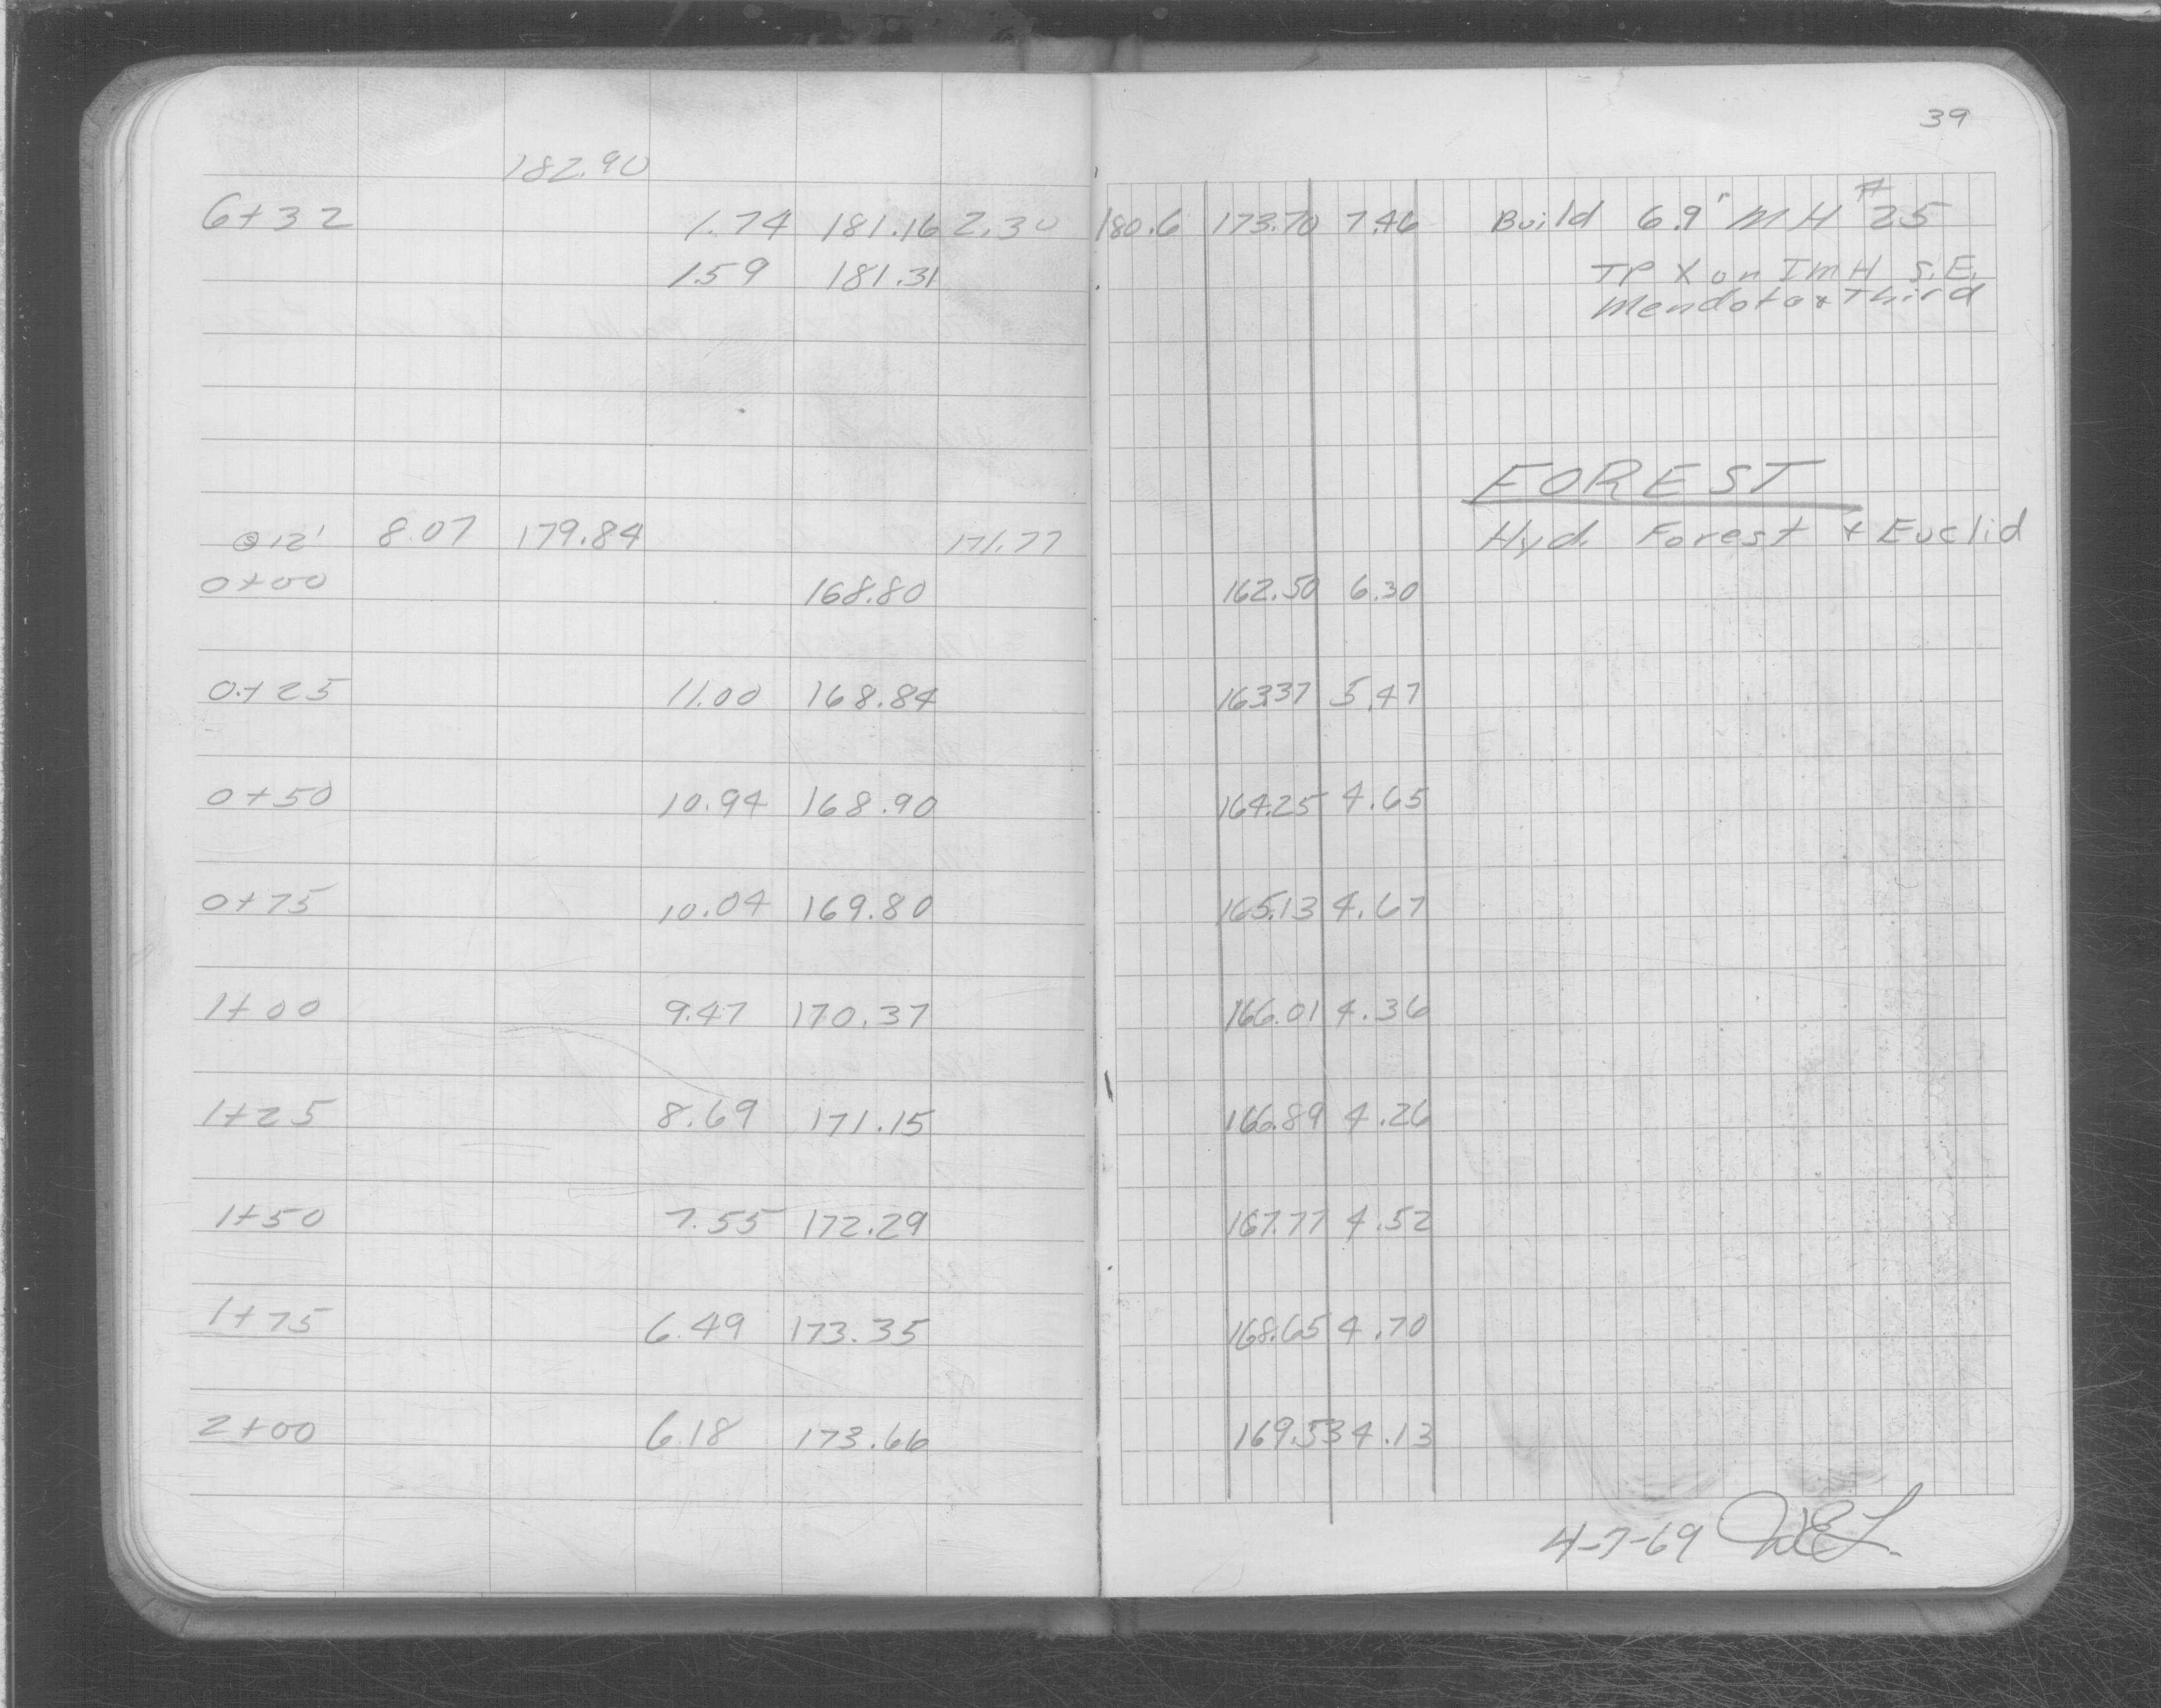 39
182.90
6+32 1.74 181.16 2.30 180.6 173.70 7.46 Build 6.9' MH #25
1.59 181.31 TP X on I MH S.E.
Mendota & Third
FOREST
@12' 8.07 179.84 171.77 Hyd. Forest & Euclid
0+00 168.80 162.50 6.30
0+25 11.00 168.84 163.37 5.47
0+50 10.94 168.90 164.25 4.65
0+75 10.04 169.80 165.13 4.67
1+00 9.47 170.37 166.01 4.36
1+25 8.69 171.15 166.89 4.26
1+50 7.55 172.29 167.77 4.52
1+75 6.49 173.35 168.65 4.70
2+00 6.18 173.66 169.53 4.13
4-7-69 WEL.